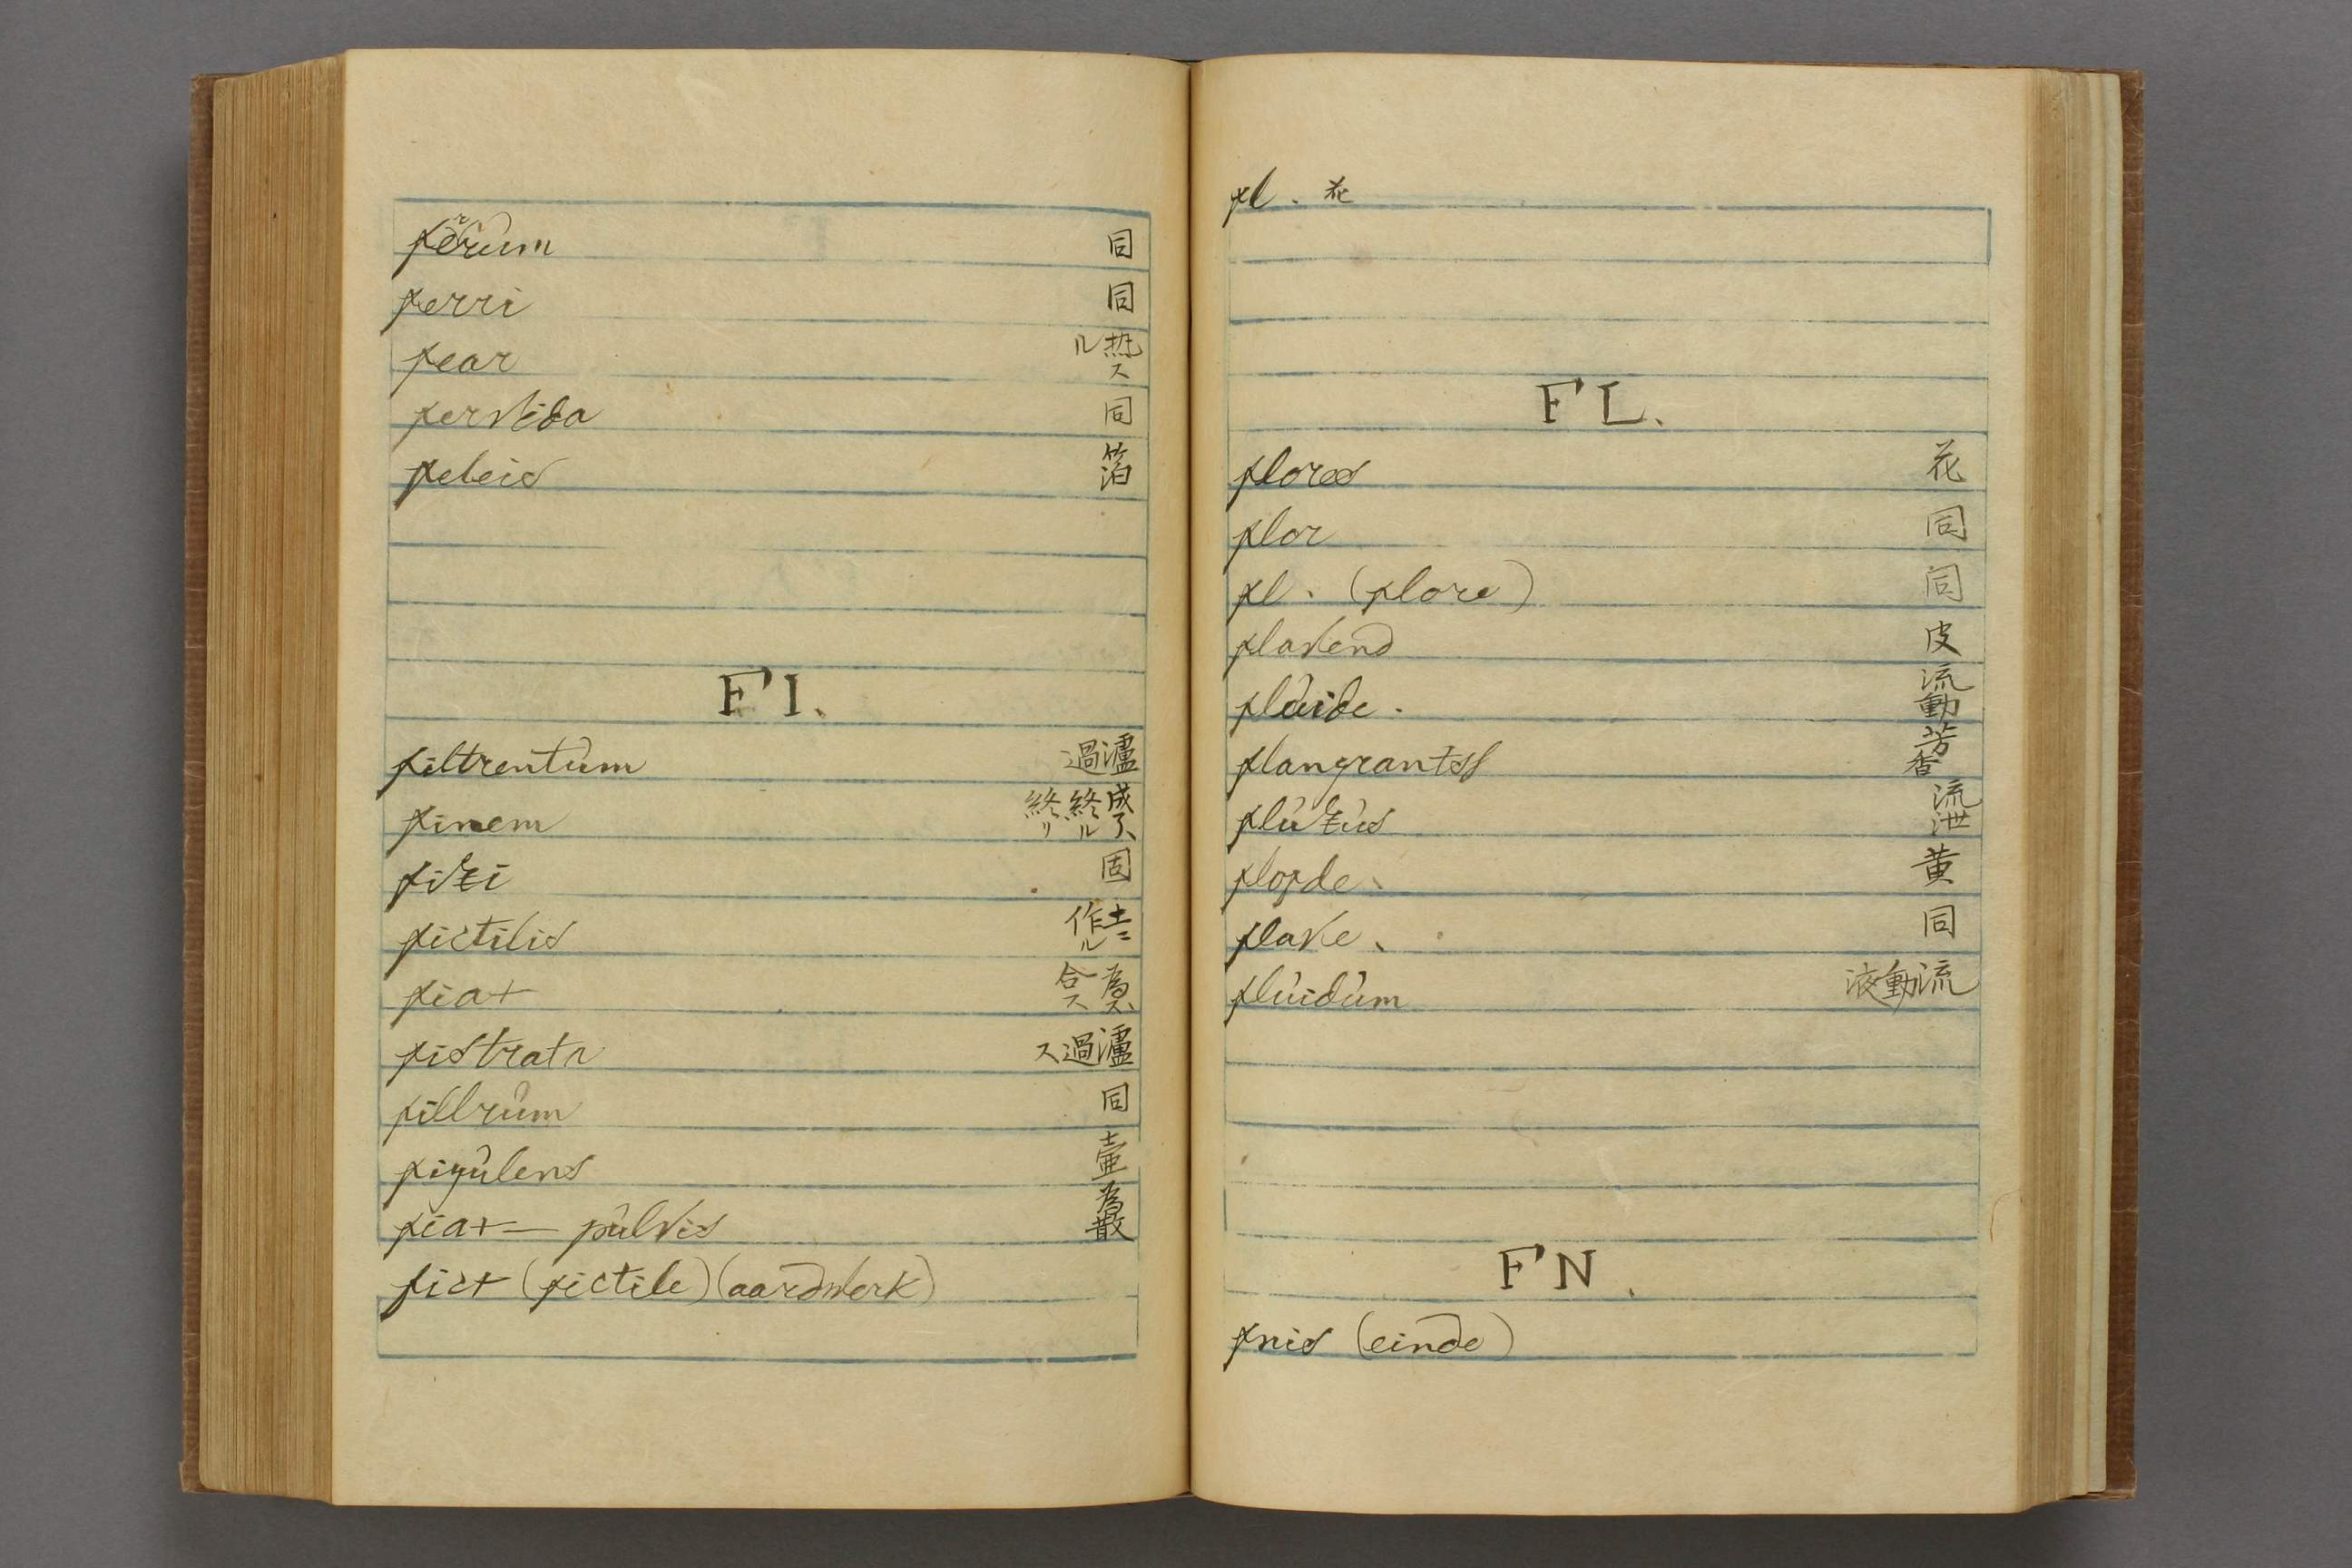 ferrum 同
ferri 同
fear 热スル
fervida 同
feleis 箔
FI.
filtrentum 濾過
finem 成了、終ル終リ
fixi 固
fictilis 土ニ作ル
fiat 為ス、合ス
fistratr 濾過ス
fillrum 同
figulens 壷
fiat — pulvis 為散
fict (fictile) (aardwerk)
fl. 花
FL.
flores 花
flor 同
fl. (flore) 同
flavend 皮
fluide. 流動
flangrantss 芳香
fluxus 流泄
flopde. 黄
flave. 同
fluidum 流動液
FN.
fnis (einde)